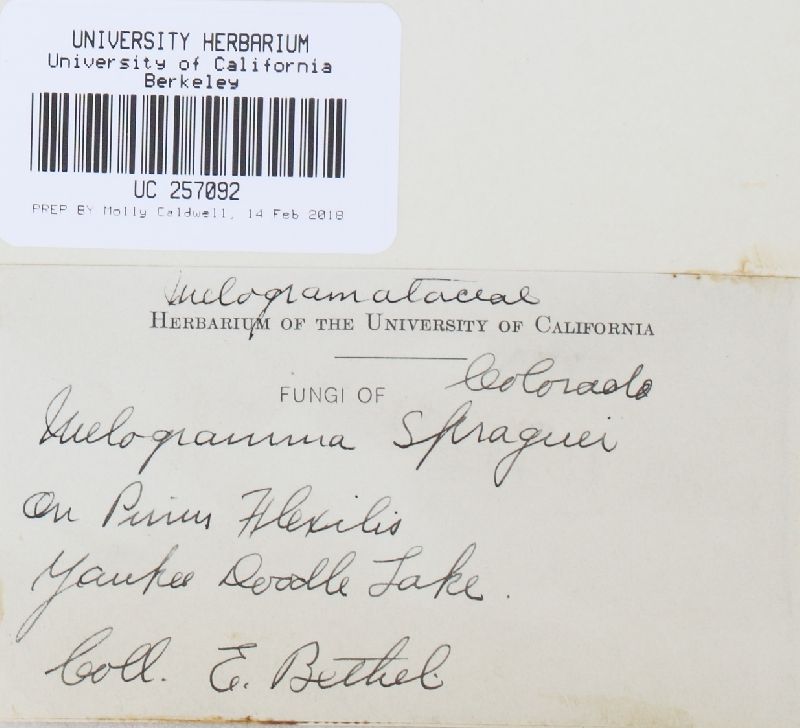 UNIVERSITY HERBARIUM
University of California
Berkeley
UC 257092
PREP BY Molly Caldwell, 14 Feb 2018
Melogramataceae
HERBARIUM OF THE UNIVERSITY OF CALIFORNIA
FUNGI OF Colorado
Melogramma Spraguei
On Pinus Flexilis
Yankee Doodle Lake.
Coll. E. Bethel.